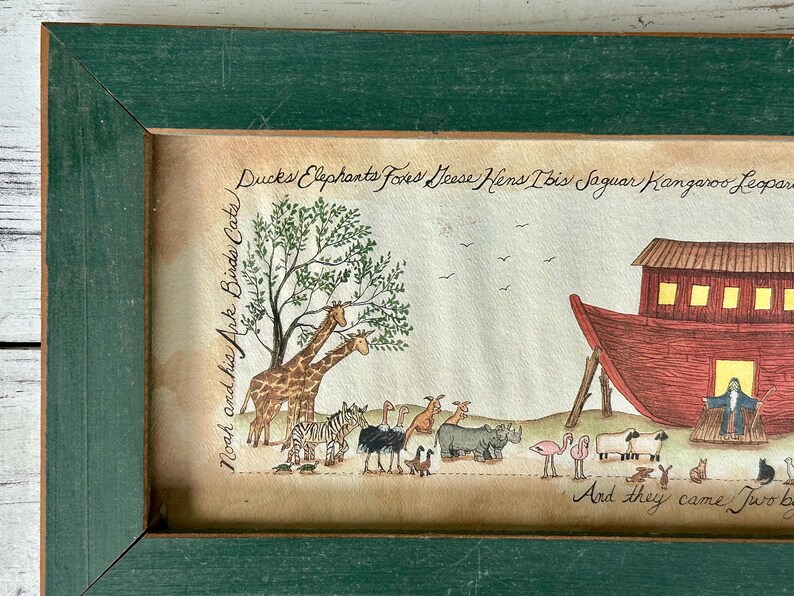 Noah and his Ark Birds Cats
Ducks Elephants Foxes Geese Hens Ibis Jaguar Kangaroo Leopar
And they came Two by